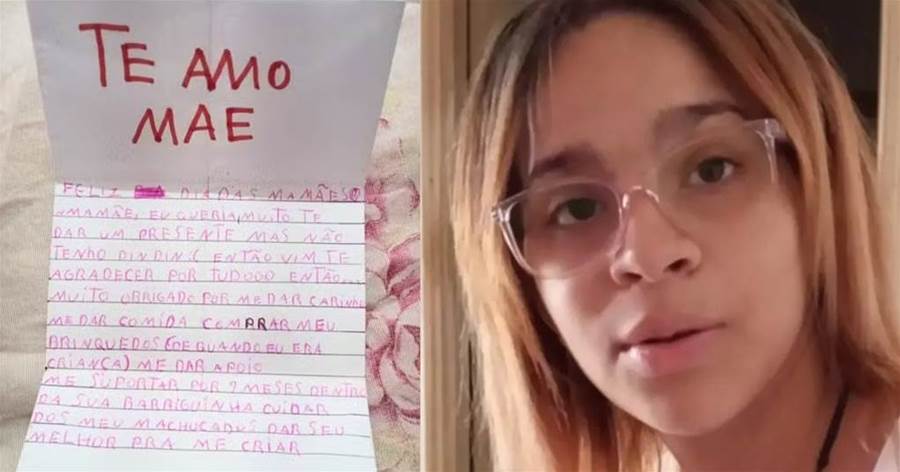 TE AMO
MAE
FELIZ DIA DAS MAMÃES
MAMÃE, EU QUERIA MUITO TE
DAR UM PRESENTE MAS NÃO
TENHO DINDIN :( ENTÃO VIM TE
AGRADECER POR TUDOOO ENTÃO...
MUITO OBRIGADO POR ME DAR CARINHO
ME DAR COMIDA COMPRAR MEU
BRINQUEDOS (DE QUANDO EU ERA
CRIANÇA) ME DAR APOIO
ME SUPORTAR POR 9 MESES DENTRO
DA SUA BARRIGUINHA CUIDAR
DOS MEU MACHUCADOS DAR SEU
MELHOR PRA ME CRIAR